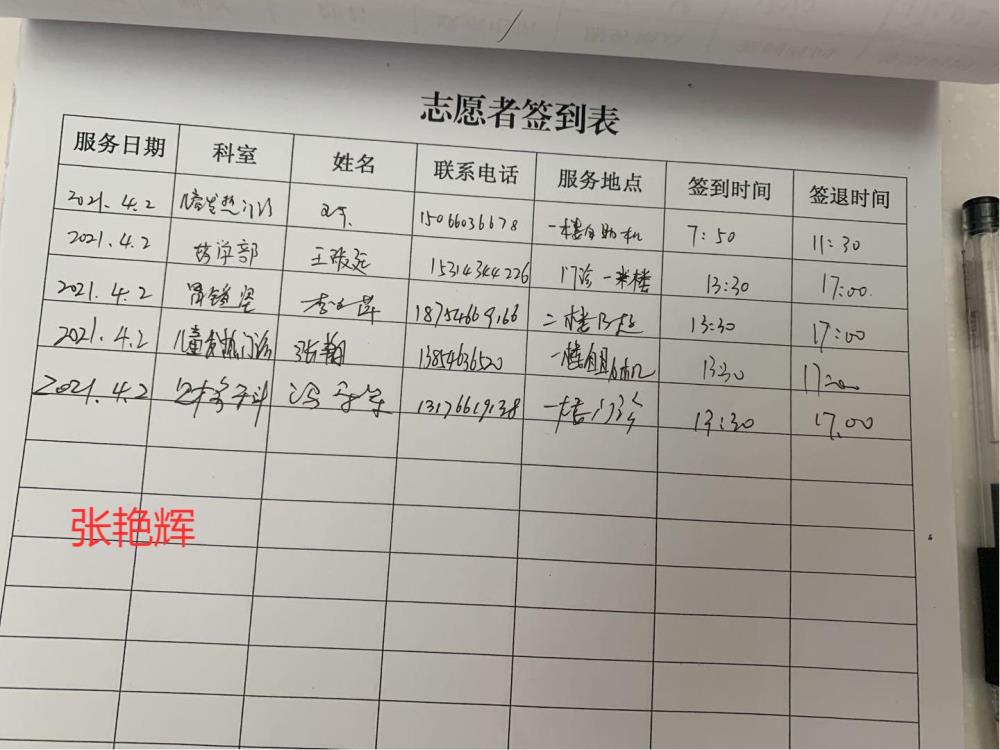 志愿者签到表
服务日期 科室 姓名 联系电话 服务地点 签到时间 签退时间
2021.4.2 儿童发热门诊 15066036678 一楼自助机 7:50 11:30
2021.4.2 药学部 15314344226 门诊一米楼 13:30 17:00.
2021.4.2 18754669166 二楼 13:30 17:00
2021.4.2 儿童发热门诊 张翔 13854636520 一楼自助机 13:30 17:00
2021.4.2 13176619138 一楼门诊 13:30 17.00
张艳辉